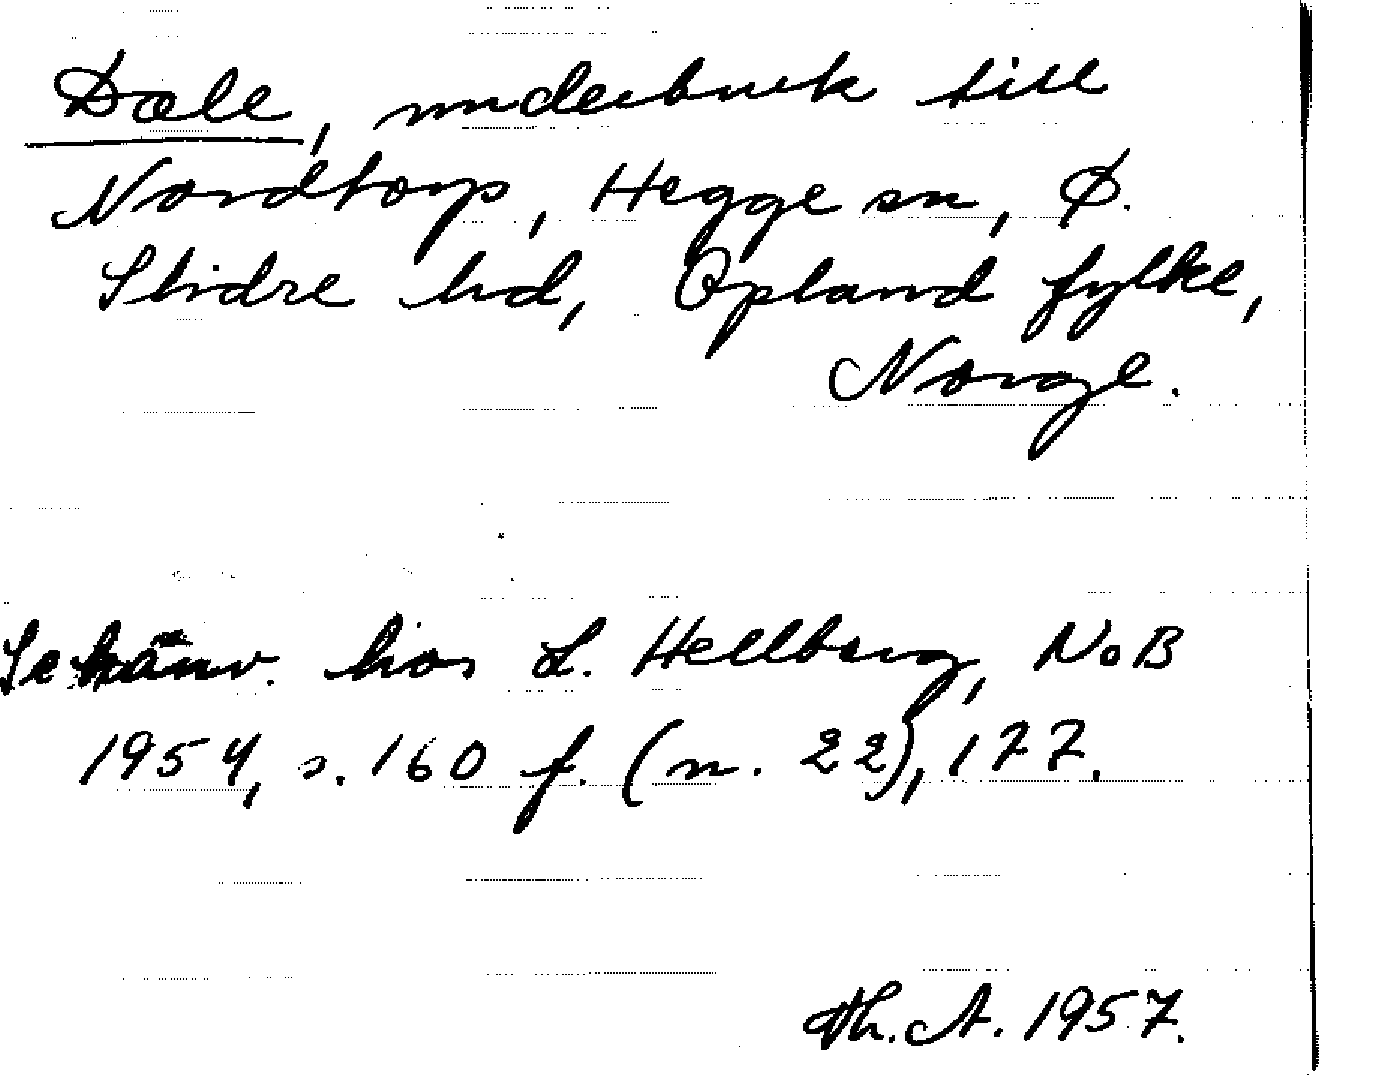 Dæle, underbruk till
Nordtorp, Hegge sn, Ø.
Slidre hd, Opland fylke,
Norge.
Se hänv. hos L. Hellberg, NoB
1954, s. 160 f. (n. 22), 177.
Th. A. 1957.